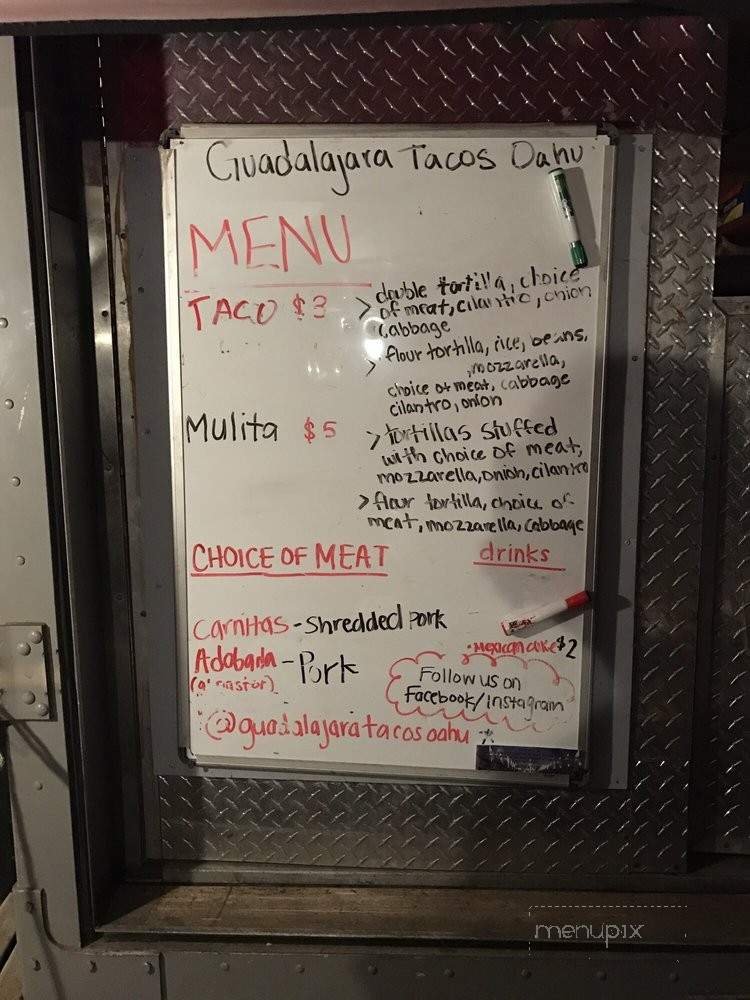 Guadalajara Tacos Oahu
MENU
TACO $3 > double tortilla, choice
of meat, cilantro, onion
cabbage
> flour tortilla, rice, beans,
, mozzarella,
choice of meat, cabbage
cilantro, onion
Mulita $5 > tortillas stuffed
with choice of meat,
mozzarella, onion, cilantro
> flour tortilla, choice of
meat, mozzarella, cabbage
CHOICE OF MEAT
drinks
Carnitas - Shredded Pork
• Mexican coke $2
Adobada - Pork
(al pastor)
Follow us on
Facebook/Instagram
@guadalajaratacosoahu
menupix